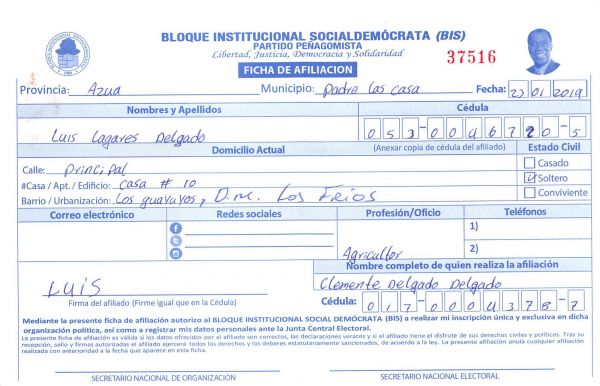 BLOQUE INSTITUCIONAL SOCIALDEMÓCRATA (BIS)
PARTIDO PEÑAGOMISTA
Libertad, Justicia, Democracia y Solidaridad
37516
FICHA DE AFILIACION
Provincia: Azua Municipio: Padre las casa Fecha: 23 01 2019
Nombres y Apellidos Cédula
Luis Lagares Delgado 053-0046720-5
Domicilio Actual (Anexar copia de cédula del afiliado) Estado Civil
Calle: Principal Casado
#Casa / Apt. / Edificio: casa # 10 Soltero
Barrio / Urbanización: Los guayuyos, D.m. Los Frios Conviviente
Correo electrónico Redes sociales Profesión/Oficio Teléfonos
1)
Agricultor 2)
Nombre completo de quien realiza la afiliación
LUIS Clemente Delgado Delgado
Firma del afiliado (Firme igual que en la Cédula) Cédula: 017-0004378-7
Mediante la presente ficha de afiliación autorizo al BLOQUE INSTITUCIONAL SOCIAL DEMÓCRATA (BIS) a realizar mi inscripción única y exclusiva en dicha
organización política, así como a registrar mis datos personales ante la Junta Central Electoral.
La presente ficha de afiliación es válida si los datos ofrecidos por el afiliado son correctos, las declaraciones veraces y si el afiliado tiene el disfrute de sus derechos civiles y políticos. Tras su
recepción, sello y firmas autorizadas el afiliado ejercerá todos los derechos y los deberes estatutariamente sancionados, de acuerdo a la ley. La presente afiliación anula cualquier afiliación
realizada con anterioridad a la fecha que aparece en esta ficha.
SECRETARIO NACIONAL DE ORGANIZACION SECRETARIO NACIONAL ELECTORAL